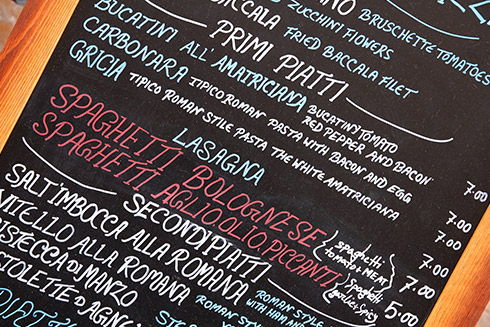 BRUSCHETTE TOMATOES
ZUCCHINI FLOWERS
BACCALA FRIED BACCALA FILET
PRIMI PIATTI
BUCATINI ALL'AMATRICIANA BUCATINI TOMATO RED PEPPER AND BACON 7.00
CARBONARA TIPICO ROMAN PASTA WITH BACON AND EGG 7.00
GRICIA TIPICO ROMAN STILE PASTA THE WHITE AMATRICIANA 7.00
LASAGNA 7.00
SPAGHETTI BOLOGNESE (spaghetti tomato & MEAT) 7.00
SPAGHETTI AGLIO OLIO PICCANTI (spaghetti garlic & spicy) 5.00
SECONDI PIATTI
SALT'IMBOCCA ALLA ROMANA ROMAN STYLE WITH HAM AND
VITELLO ALLA ROMANA ROMAN STYLE
BISTECCA DI MANZO